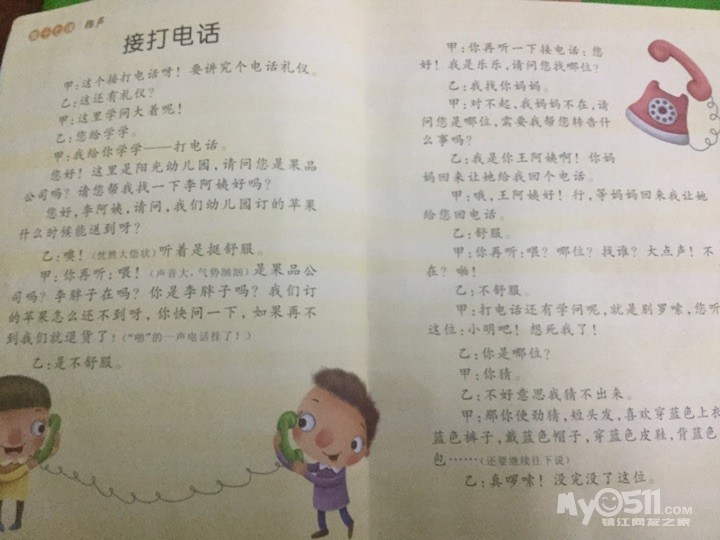 相声
接打电话
甲：这个接打电话呀！要讲究个电话礼仪。
乙：这还有礼仪？
甲：这里学问大着呢！
乙：您给学学。
甲：我给你学学——打电话。
您好！这里是阳光幼儿园，请问您是果品
公司吗？请您帮我找一下李阿姨好吗？
您好，李阿姨，请问，我们幼儿园订的苹果
什么时候能送到呀？
乙：噢！（恍然大悟状）听着是挺舒服。
甲：你再听：喂！（声音大，气势汹汹）是果品公
司吗？李胖子在吗？你是李胖子吗？我们订
的苹果怎么还不到呀，你快问一下，如果再不
到我们就退货了！（“啪”的一声电话挂了！）
乙：是不舒服。
甲：你再听一下接电话：您
好！我是乐乐，请问您找哪位？
乙：我找你妈妈。
甲：对不起，我妈妈不在，请
问您是哪位，需要我帮您转告什
么事吗？
乙：我是你王阿姨啊！你妈
妈回来让她给我回个电话。
甲：哦，王阿姨好！行，等妈妈回来我让她
给您回电话。
乙：舒服。
甲：你再听：喂？哪位？找谁？大点声！不
在？啪！
乙：不舒服。
甲：打电话还有学问呢，就是别罗嗦，您听
这位：小明吧！想死我了！
乙：你是哪位？
甲：你猜。
乙：不好意思我猜不出来。
甲：那你使劲猜，短头发，喜欢穿蓝色上衣
蓝色裤子，戴蓝色帽子，穿蓝色皮鞋，背蓝色
包……（还要继续往下说）
乙：真啰嗦！没完没了这位。
My0511.COM
镇江网友之家